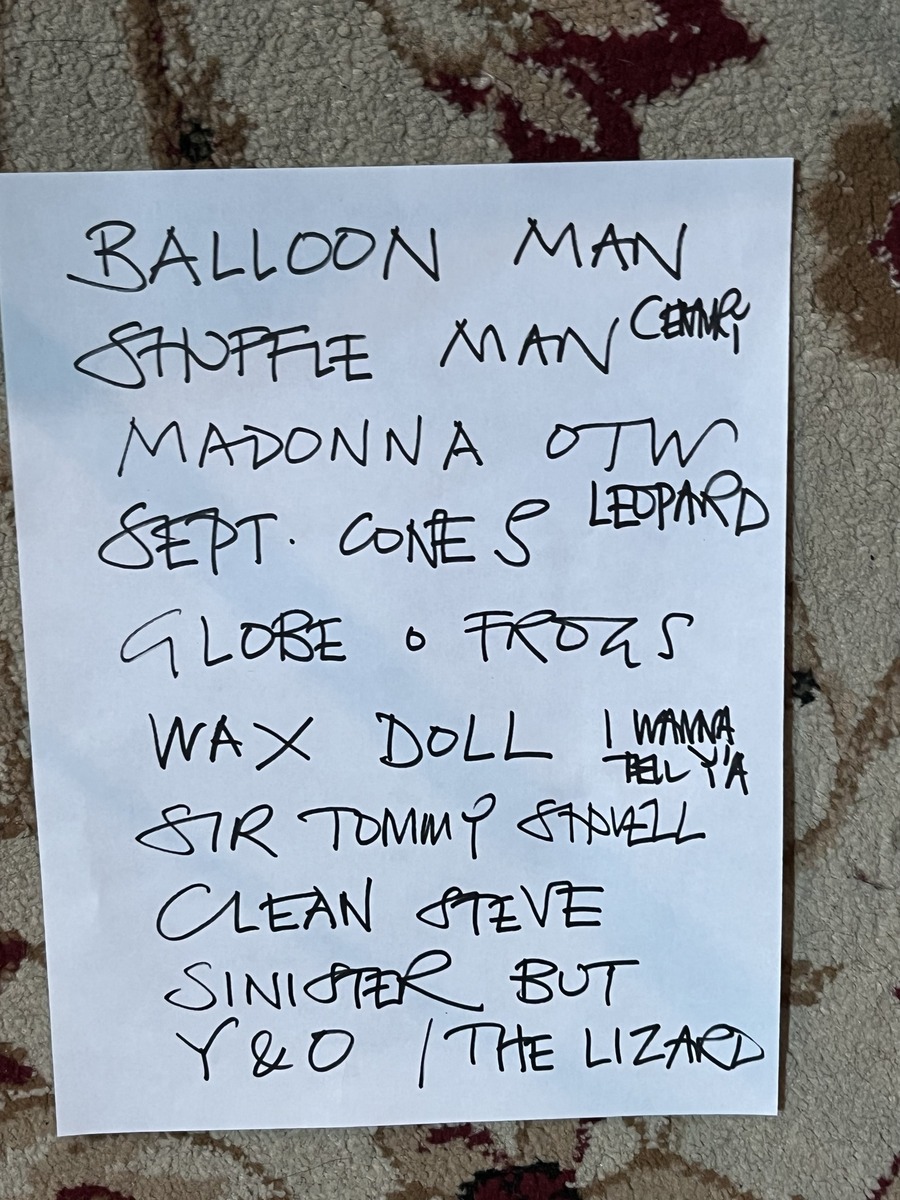 BALLOON MAN
SHUFFLE MAN
MADONNA OTW
SEPT. CONES LEOPARD
GLOBE O FROGS
WAX DOLL I WANNA
TELL Y'A
SIR TOMMY
CLEAN STEVE
SINISTER BUT
Y & O / THE LIZARD